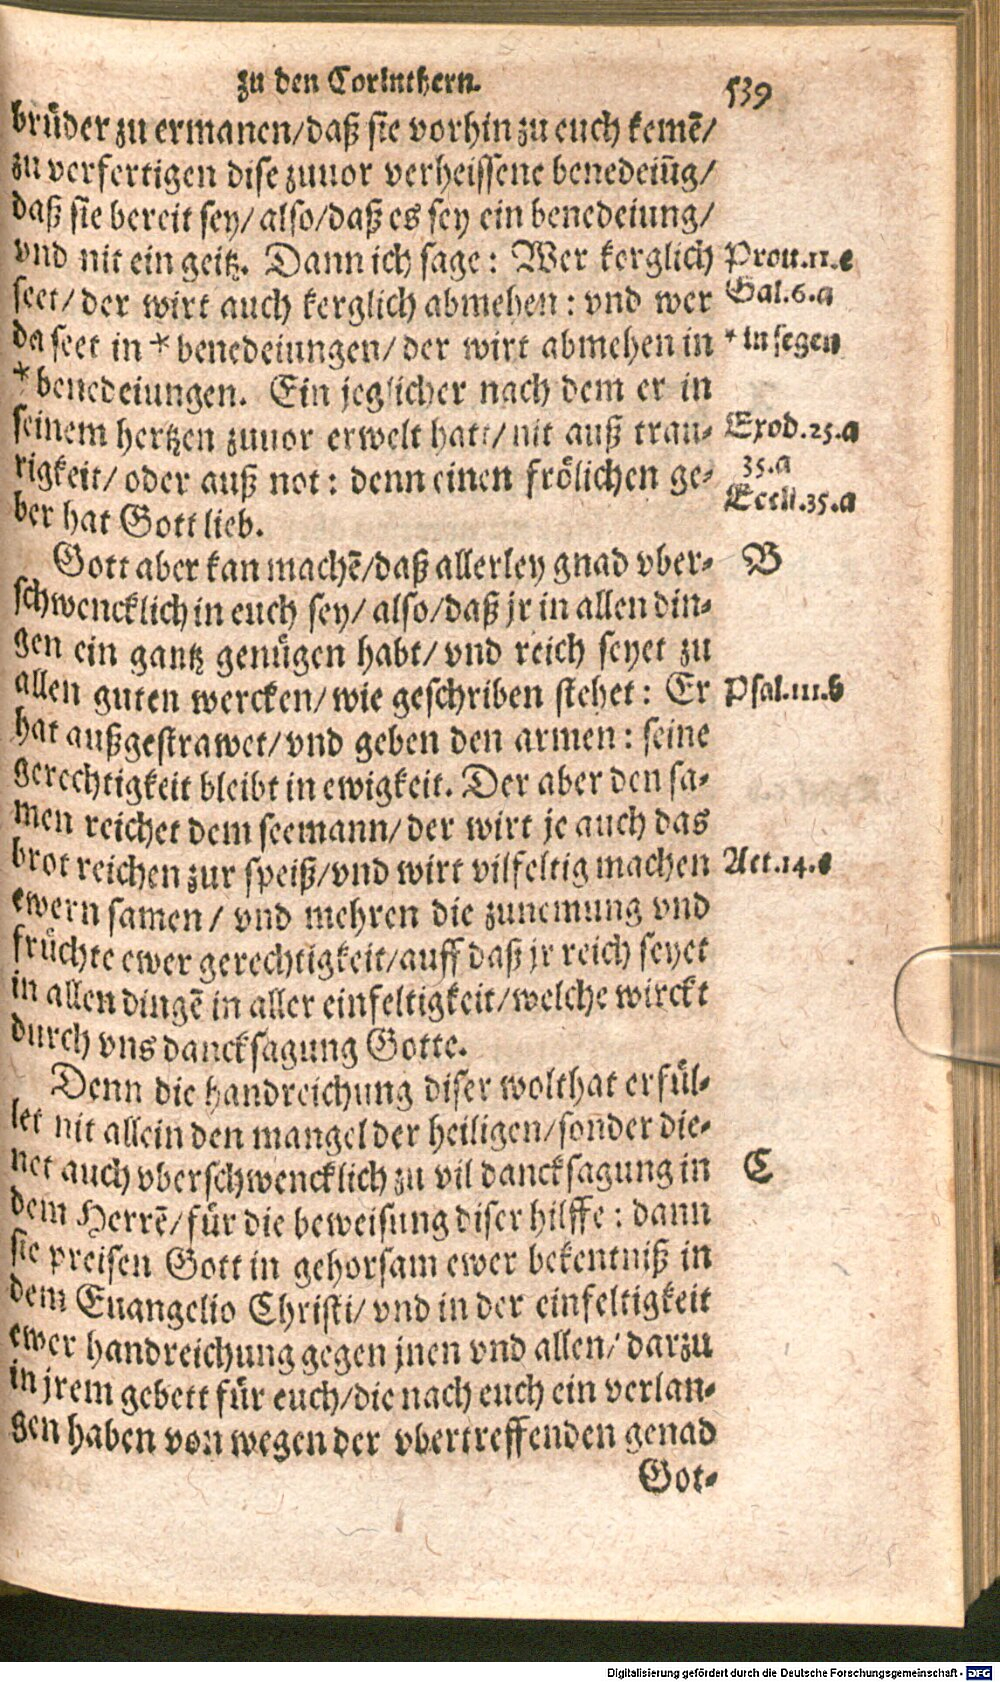 zu den Corinthern.
539
brüder zu ermanen/daß sie vorhin zu euch kemē/
zu verfertigen dise zuuor verheissene benedeiūg/
daß sie bereit sey/ also/daß es sey ein benedeiung/
vnd nit ein geitz. Dann ich sage: Wer kerglich
Prou.11.e
seet/ der wirt auch kerglich abmehen: vnd wer
Gal.6.a
da seet in * benedeiungen/ der wirt abmehen in
* in segen
* benedeiungen. Ein jeglicher nach dem er in
seinem hertzen zuuor erwelt hatt/ nit auß trau-
Exod.25.a
35.a
rigkeit/ oder auß not: denn einen frölichen ge-
Eccli.35.a
ber hat Gott lieb.
Gott aber kan machē/daß allerley gnad vber-
B
schwencklich in euch sey/ also/daß jr in allen din-
gen ein gantz genügen habt/ vnd reich seyet zu
allen guten wercken/ wie geschriben stehet: Er
Psal.111.b
hat außgestrawet/vnd geben den armen: seine
gerechtigkeit bleibt in ewigkeit. Der aber den sa-
men reichet dem seemann/ der wirt je auch das
brot reichen zur speiß/vnd wirt vilfeltig machen
Act.14.e
ewern samen/ vnd mehren die zunemung vnd
früchte ewer gerechtigkeit/auff daß jr reich seyet
in allen dingē in aller einfeltigkeit/welche wirckt
durch vns dancksagung Gotte.
Denn die handreichung diser wolthat erfül-
let nit allein den mangel der heiligen/sonder die-
net auch vberschwencklich zu vil dancksagung in
C
dem Herrē/für die beweisung diser hilffe: dann
sie preisen Gott in gehorsam ewer bekentniß in
dem Euangelio Christi/ vnd in der einfeltigkeit
ewer handreichung gegen jnen vnd allen/ darzu
in jrem gebett für euch/die nach euch ein verlan-
gen haben von wegen der vbertreffenden genad
Got-
Digitalisierung gefördert durch die Deutsche Forschungsgemeinschaft - DFG